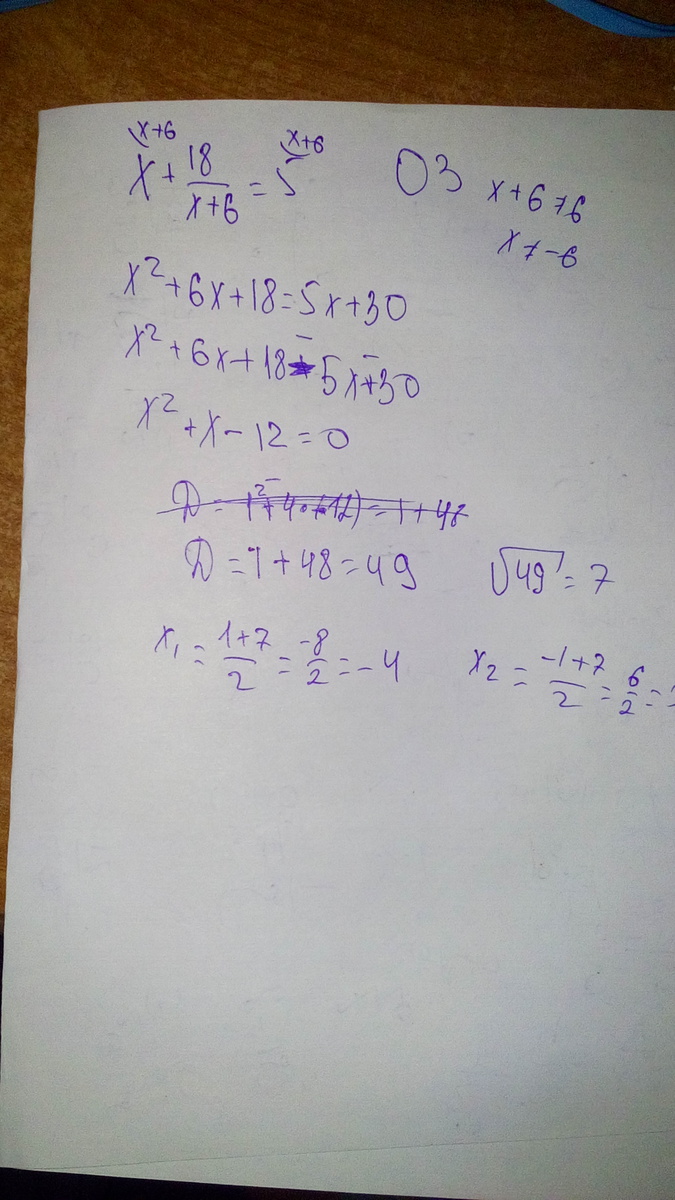 x+6 x+6
x + 18/(x+6) = 5 ОЗ x+6≠6
x≠-6
x²+6x+18=5x+30
x²+6x+18-5x-30
x²+x-12=0
D=1+48=49 √49=7
x₁=(1+7)/2=-8/2=-4 x₂=(-1+7)/2=6/2=